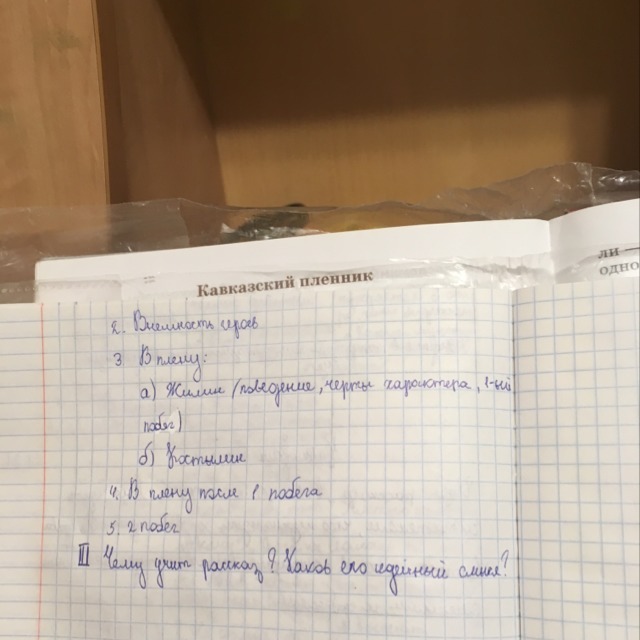 ли
одно
Кавказский пленник
2. Внешность героев
3. В плену:
а) Жилин (поведение, черты характера, 1-ый
побег)
б) Костылин
4. В плену после 1 побега
5. 2 побег
III Чему учит рассказ? Каков его идейный смысл?